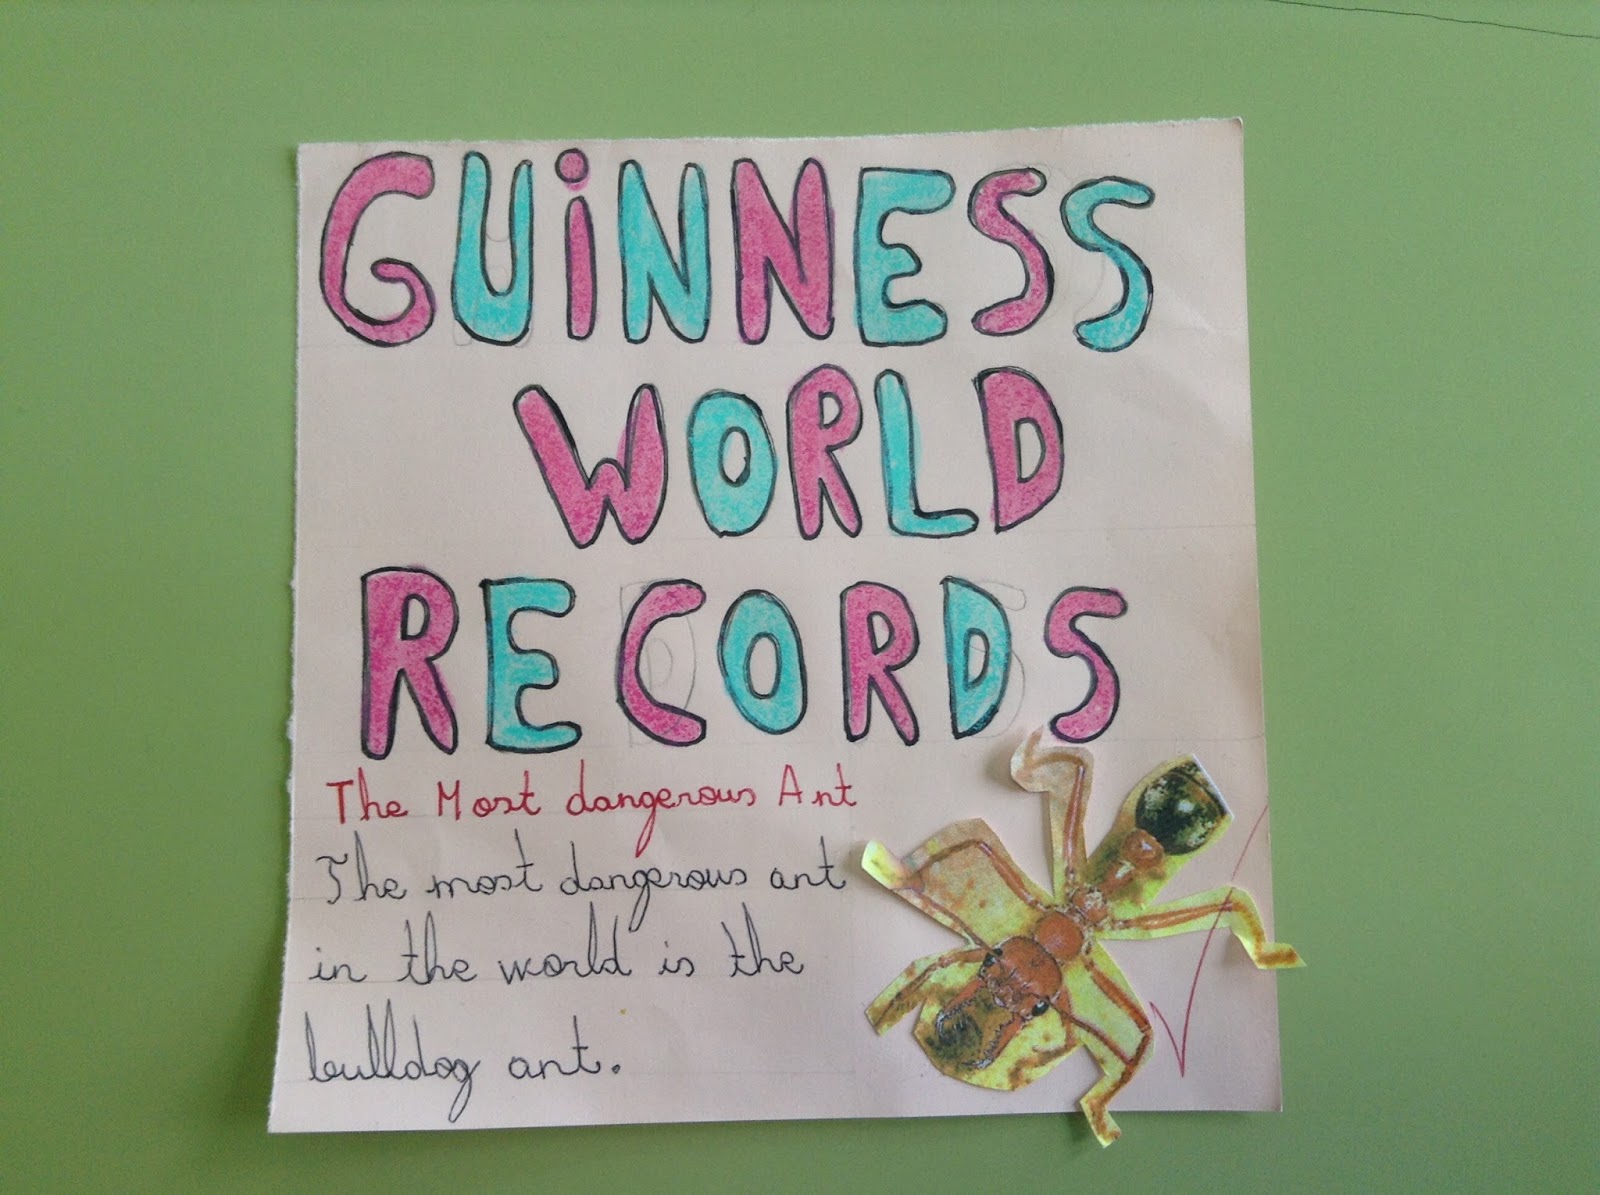 GUiNNESS
WORLD
RECORDS
The Most dangerous Ant
The most dangerous ant
in the world is the
bulldog ant.